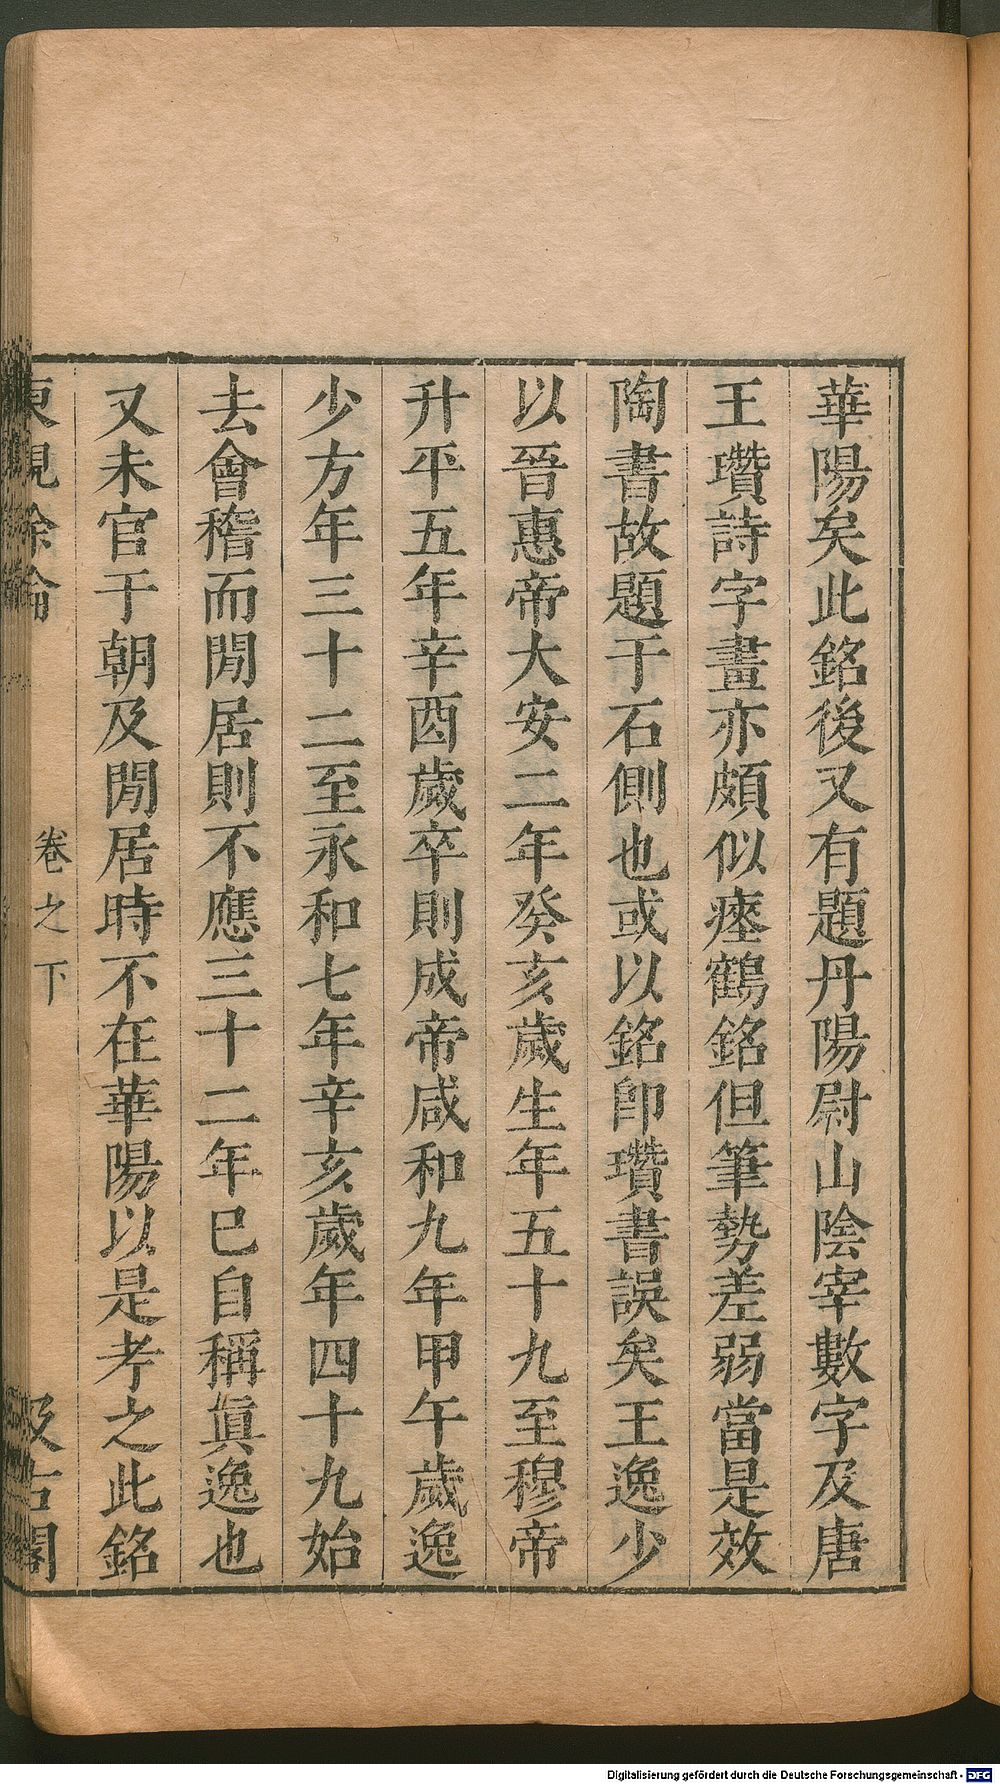 華陽矣此銘後又有題丹陽尉山陰宰數字及唐
王瓚詩字畫亦頗似瘞鶴銘但筆勢差弱當是效
陶書故題于石側也或以銘卽瓚書誤矣王逸少
以晉惠帝大安二年癸亥歲生年五十九至穆帝
升平五年辛酉歲卒則成帝咸和九年甲午歲逸
少方年三十二至永和七年辛亥歲年四十九始
去會稽而閒居則不應三十二年已自稱眞逸也
又未官于朝及閒居時不在華陽以是考之此銘
東觀餘論 卷之下 汲古閣
Digitalisierung gefördert durch die Deutsche Forschungsgemeinschaft - DFG